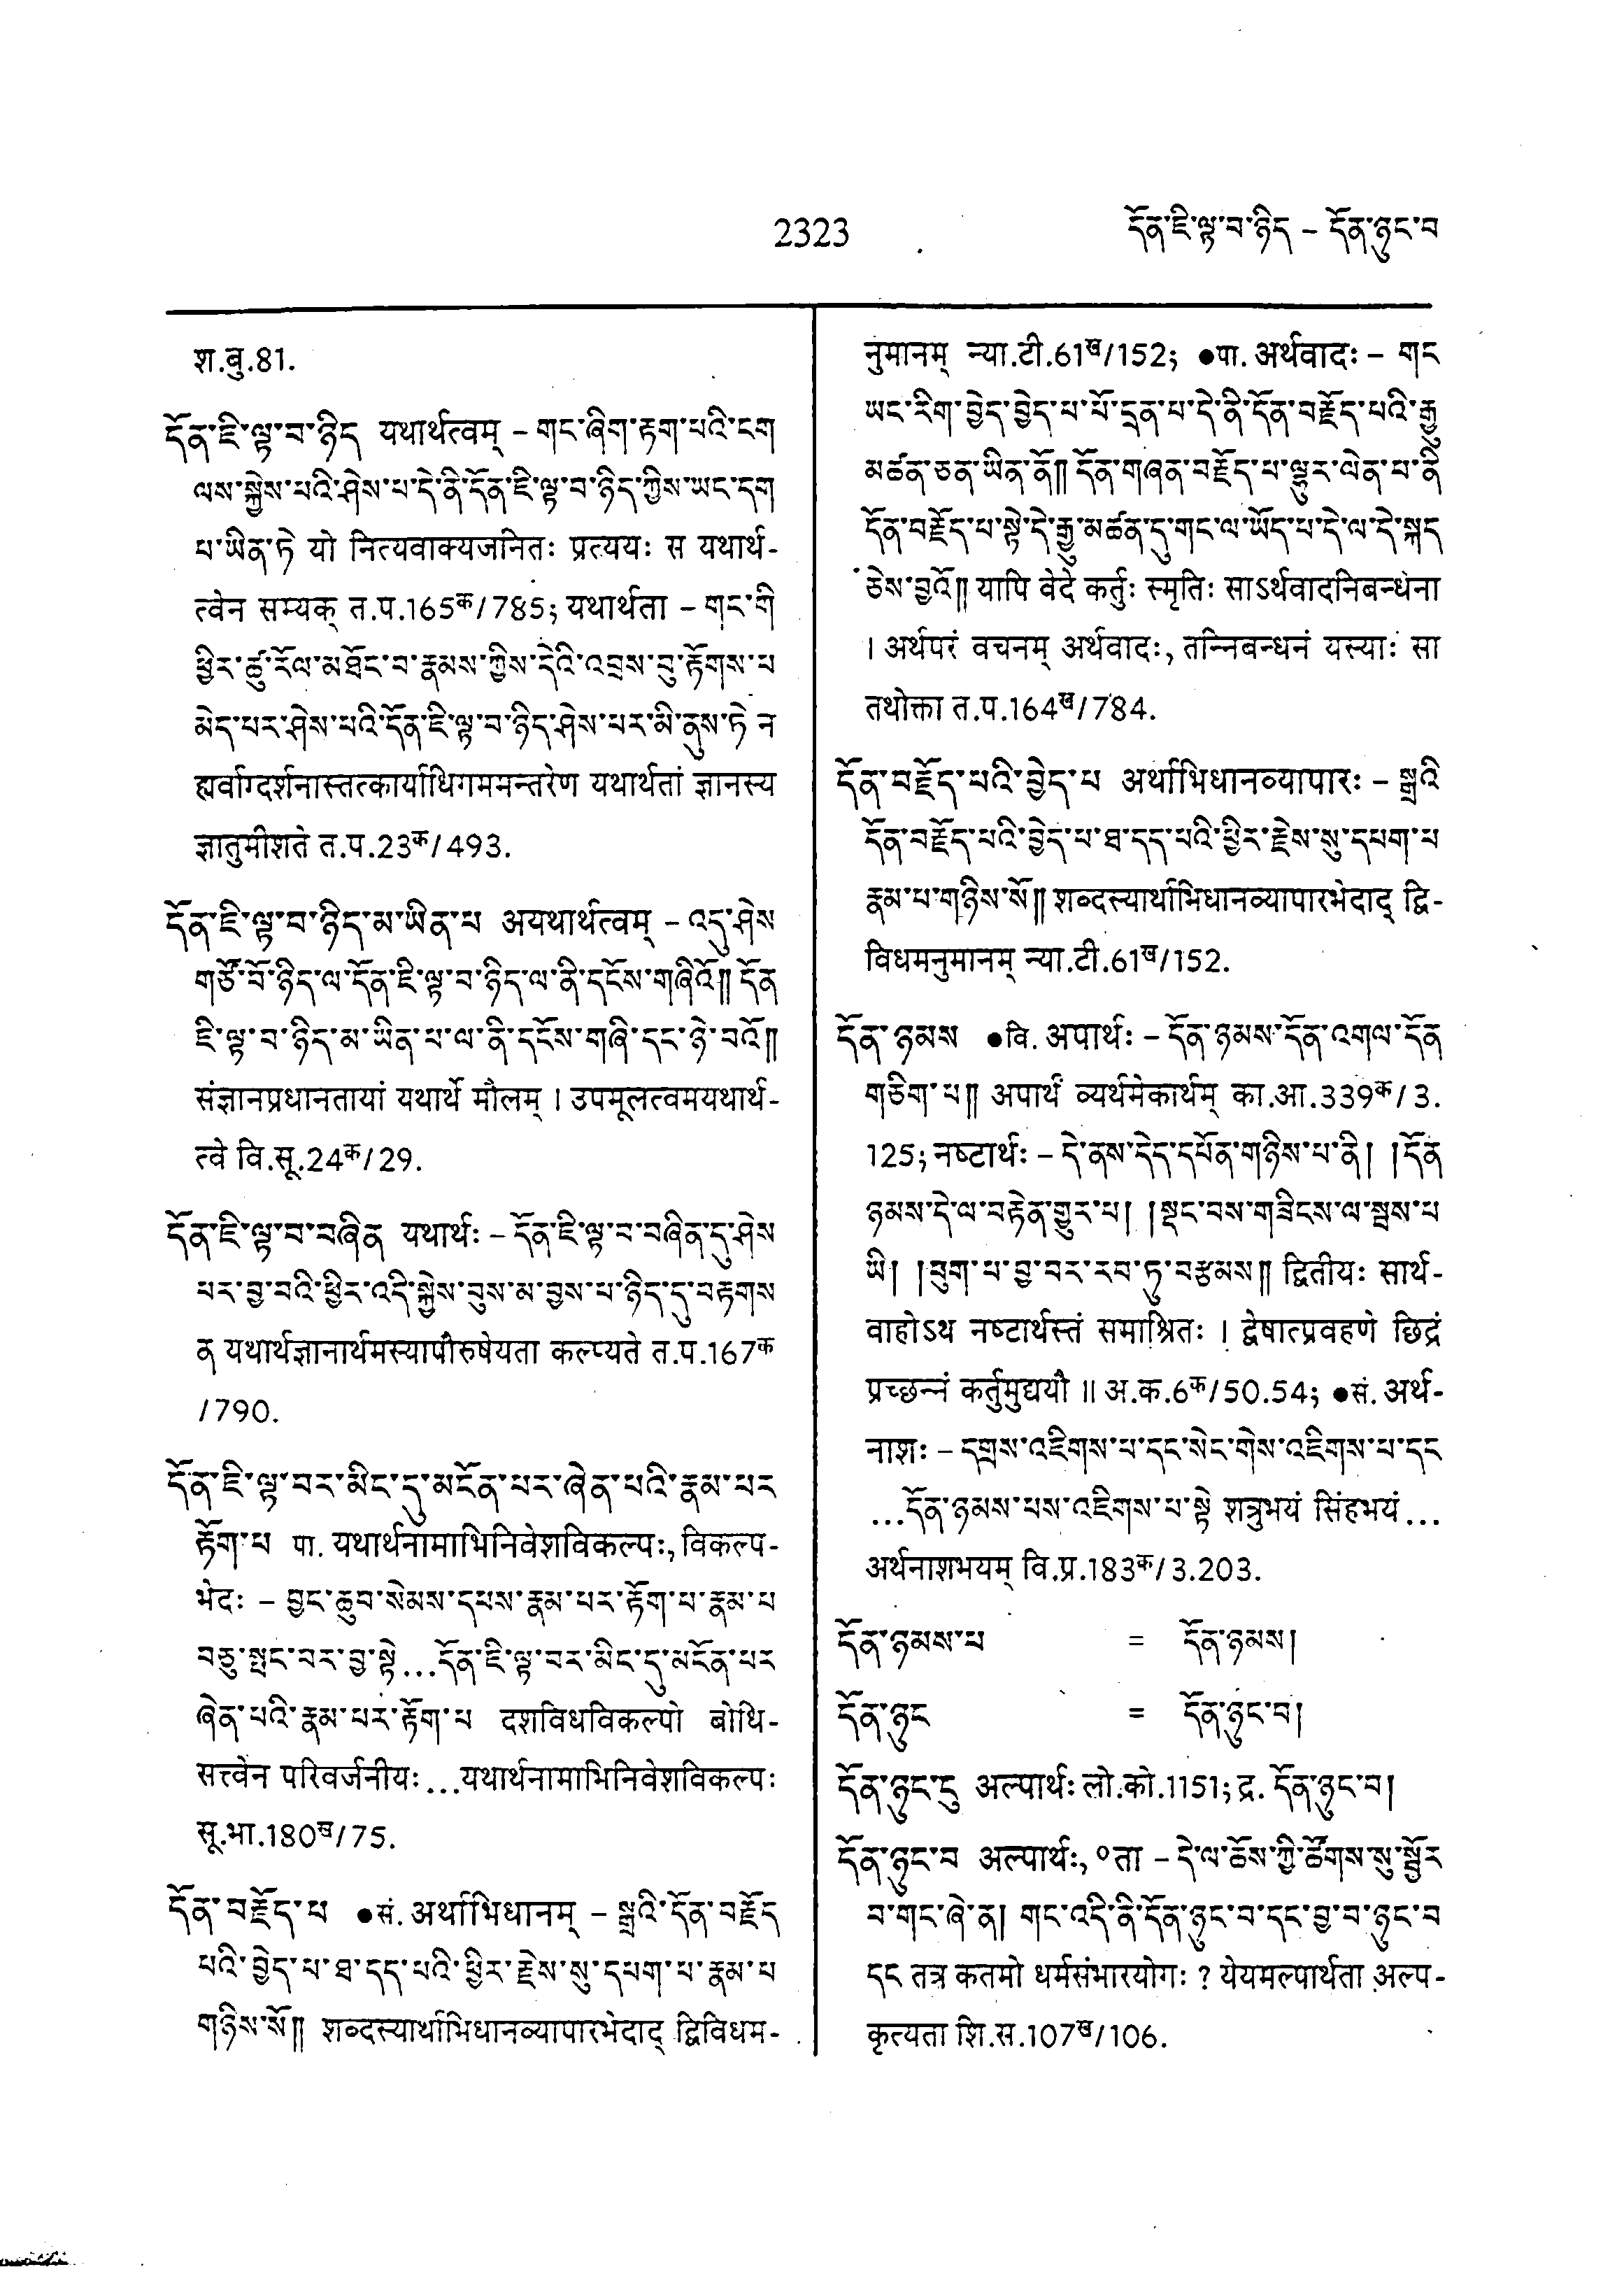 2323
དོན་ཇི་ལྟ་བ་ཉིད – དོན་ཉུང་བ
श.बु.81.
དོན་ཇི་ལྟ་བ་ཉིད यथार्थत्वम् – གང་ཞིག་རྟག་པའི་ངག
ལས་སྐྱེས་པའི་ཤེས་པ་དེ་ནི་དོན་ཇི་ལྟ་བ་ཉིད་ཀྱིས་ཡང་དག
པ་ཡིན་ཏེ यो नित्यवाक्यजनितः प्रत्ययः स यथार्थ-
त्वेन सम्यक् त.प.165क/785; यथार्थता – གང་གི
ཕྱིར་ཚུ་རོལ་མཐོང་བ་རྣམས་ཀྱིས་དེའི་འབྲས་བུ་རྟོགས་པ
མེད་པར་ཤེས་པའི་དོན་ཇི་ལྟ་བ་ཉིད་ཤེས་པར་མི་ནུས་ཏེ न
ह्यर्वाग्दर्शनास्तत्कार्याधिगममन्तरेण यथार्थतां ज्ञानस्य
ज्ञातुमीशते त.प.23क/493.
དོན་ཇི་ལྟ་བ་ཉིད་མ་ཡིན་པ अयथार्थत्वम् – འདུ་ཤེས
གཙོ་བོ་ཉིད་ལ་དོན་ཇི་ལྟ་བ་ཉིད་ལ་ནི་དངོས་གཞིའོ༎ དོན
ཇི་ལྟ་བ་ཉིད་མ་ཡིན་པ་ལ་ནི་དངོས་གཞི་དང་ཉེ་བའོ༎
संज्ञानप्रधानतायां यथार्थे मौलम् । उपमूलत्वमयथार्थ-
त्वे वि.सू.24क/29.
དོན་ཇི་ལྟ་བ་བཞིན यथार्थः – དོན་ཇི་ལྟ་བ་བཞིན་དུ་ཤེས
པར་བྱ་བའི་ཕྱིར་འདི་སྐྱེས་བུས་མ་བྱས་པ་ཉིད་དུ་བརྟགས
ན यथार्थज्ञानार्थमस्यापौरुषेयता कल्प्यते त.प.167क
/790.
དོན་ཇི་ལྟ་བར་མིང་དུ་མངོན་པར་ཞེན་པའི་རྣམ་པར
རྟོག་པ पा. यथार्थनामाभिनिवेशविकल्पः, विकल्प-
भेदः – བྱང་ཆུབ་སེམས་དཔས་རྣམ་པར་རྟོག་པ་རྣམ་པ
བཅུ་སྤང་བར་བྱ་སྟེ...དོན་ཇི་ལྟ་བར་མིང་དུ་མངོན་པར
ཞེན་པའི་རྣམ་པར་རྟོག་པ दशविधविकल्पो बोधि-
सत्त्वेन परिवर्जनीयः...यथार्थनामाभिनिवेशविकल्पः
सू.भा.180ख/75.
དོན་བརྗོད་པ ●सं. अर्थाभिधानम् – སྒྲའི་དོན་བརྗོད
པའི་བྱེད་པ་ཐ་དད་པའི་ཕྱིར་རྗེས་སུ་དཔག་པ་རྣམ་པ
གཉིས་སོ༎ शब्दस्यार्थाभिधानव्यापारभेदाद् द्विविधम-
नुमानम् न्या.टी.61ख/152; ●पा. अर्थवादः – གང
ཡང་རིག་བྱེད་བྱེད་པ་པོ་དྲན་པ་དེ་ནི་དོན་བརྗོད་པའི་རྒྱུ
མཚན་ཅན་ཡིན་ནོ༎ དོན་གཞན་བརྗོད་པ་ལྷུར་ལེན་པ་ནི
དོན་བརྗོད་པ་སྟེ་དེ་རྒྱུ་མཚན་དུ་གང་ལ་ཡོད་པ་དེ་ལ་དེ་སྐད
ཅེས་བྱའོ༎ यापि वेदे कर्तुः स्मृतिः साऽर्थवादनिबन्धना
। अर्थपरं वचनम् अर्थवादः, तन्निबन्धनं यस्याः सा
तथोक्ता त.प.164ख/784.
དོན་བརྗོད་པའི་བྱེད་པ अर्थाभिधानव्यापारः – སྒྲའི
དོན་བརྗོད་པའི་བྱེད་པ་ཐ་དད་པའི་ཕྱིར་རྗེས་སུ་དཔག་པ
རྣམ་པ་གཉིས་སོ༎ शब्दस्यार्थाभिधानव्यापारभेदाद् द्वि-
विधमनुमानम् न्या.टी.61ख/152.
དོན་ཉམས ●वि. अपार्थः – དོན་ཉམས་དོན་འགལ་དོན
གཅིག་པ༎ अपार्थं व्यर्थमेकार्थम् का.आ.339क/3.
125; नष्टार्थः – དེ་ནས་དེད་དཔོན་གཉིས་པ་ནི། །དོན
ཉམས་དེ་ལ་བརྟེན་གྱུར་པ། །སྡང་བས་གཟིངས་ལ་སྦས་པ
ཡི། །བུག་པ་བྱ་བར་རབ་ཏུ་བརྩམས༎ द्वितीयः सार्थ-
वाहोऽथ नष्टार्थस्तं समाश्रितः । द्वेषात्प्रवहणे छिद्रं
प्रच्छन्नं कर्तुमुद्ययौ ॥ अ.क.6क/50.54; ●सं. अर्थ-
नाशः – དགྲས་འཇིགས་པ་དང་སེང་གེས་འཇིགས་པ་དང
...དོན་ཉམས་པས་འཇིགས་པ་སྟེ शत्रुभयं सिंहभयं...
अर्थनाशभयम् वि.प्र.183क/3.203.
དོན་ཉམས་པ = དོན་ཉམས།
དོན་ཉུང = དོན་ཉུང་བ།
དོན་ཉུང་ངུ अल्पार्थः लो.को.1151; द्र. དོན་ཉུང་བ།
དོན་ཉུང་བ अल्पार्थः, ०ता – དེ་ལ་ཆོས་ཀྱི་ཚོགས་སུ་སྦྱོར
བ་གང་ཞེ་ན། གང་འདི་ནི་དོན་ཉུང་བ་དང་བྱ་བ་ཉུང་བ
དང तत्र कतमो धर्मसंभारयोगः ? येयमल्पार्थता अल्प-
कृत्यता शि.स.107ख/106.